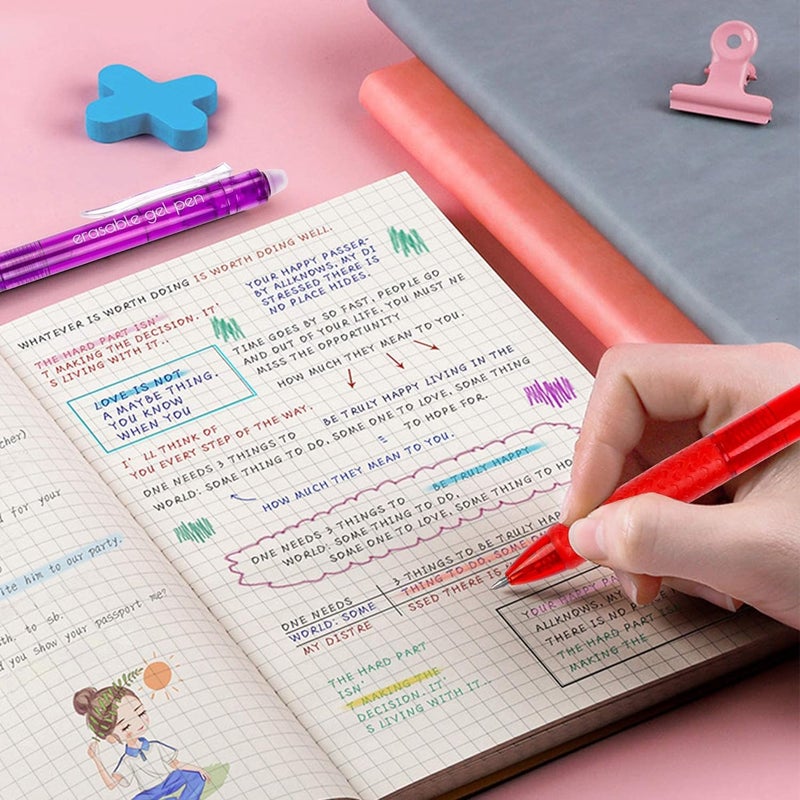 erasable gel pen
WHATEVER IS WORTH DOING IS WORTH DOING WELL.
THE HARD PART ISN'
T MAKING THE DECISION. IT'
S LIVING WITH IT..
YOUR HAPPY PASSER-
BY ALLKNOWS, MY DI
STRESSED THERE IS
NO PLACE HIDES.
LOVE IS NOT
A MAYBE THING.
YOU KNOW
WHEN YOU
TIME GOES BY SO FAST, PEOPLE GO
AND OUT OF YOUR LIFE. YOU MUST NE
MISS THE OPPORTUNITY
HOW MUCH THEY MEAN TO YOU.
I' LL THINK OF
YOU EVERY STEP OF THE WAY.
BE TRULY HAPPY LIVING IN THE
ONE NEEDS 3 THINGS TO
WORLD: SOME THING TO DO, SOME ONE TO LOVE, SOME THING
= TO HOPE FOR.
HOW MUCH THEY MEAN TO YOU.
BE TRULY HAPPY
ONE NEEDS 3 THINGS TO
WORLD: SOME THING TO DO,
SOME ONE TO LOVE, SOME THING TO HO
3 THINGS TO BE TRULY HAP
ONE NEEDS THING TO DO, SOME ON
WORLD: SOME SSED THERE IS
MY DISTRE
YOUR HAPPY PA
ALLKNOWS, MY
THERE IS NO PLACE
THE HARD PART
MAKING THE
THE HARD PART
ISN'
T MAKING THE
DECISION. IT'
S LIVING WITH IT..
cher)
d for your
ite him to our party.
th. to sb.
d you show your passport me?